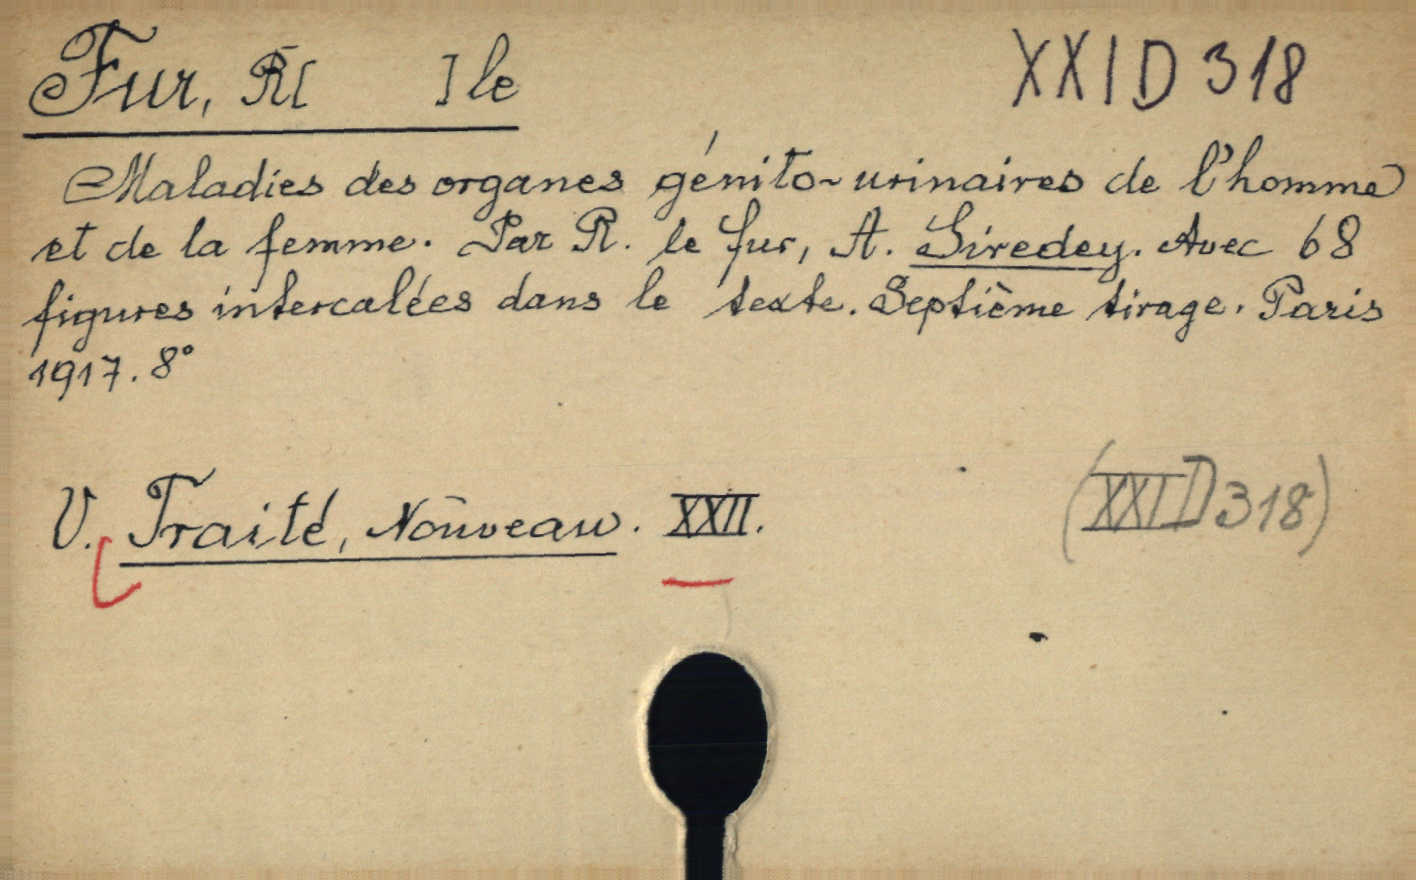 Fur, R[ ] le XXI D 318
Maladies des organes génito-urinaires de l'homme
et de la femme. Par R. le Fur, A. Siredey. Avec 68
figures intercalées dans le texte. Septième tirage. Paris
1917. 8°
V. Traité, Nouveau. XXII. (XXI D 318)